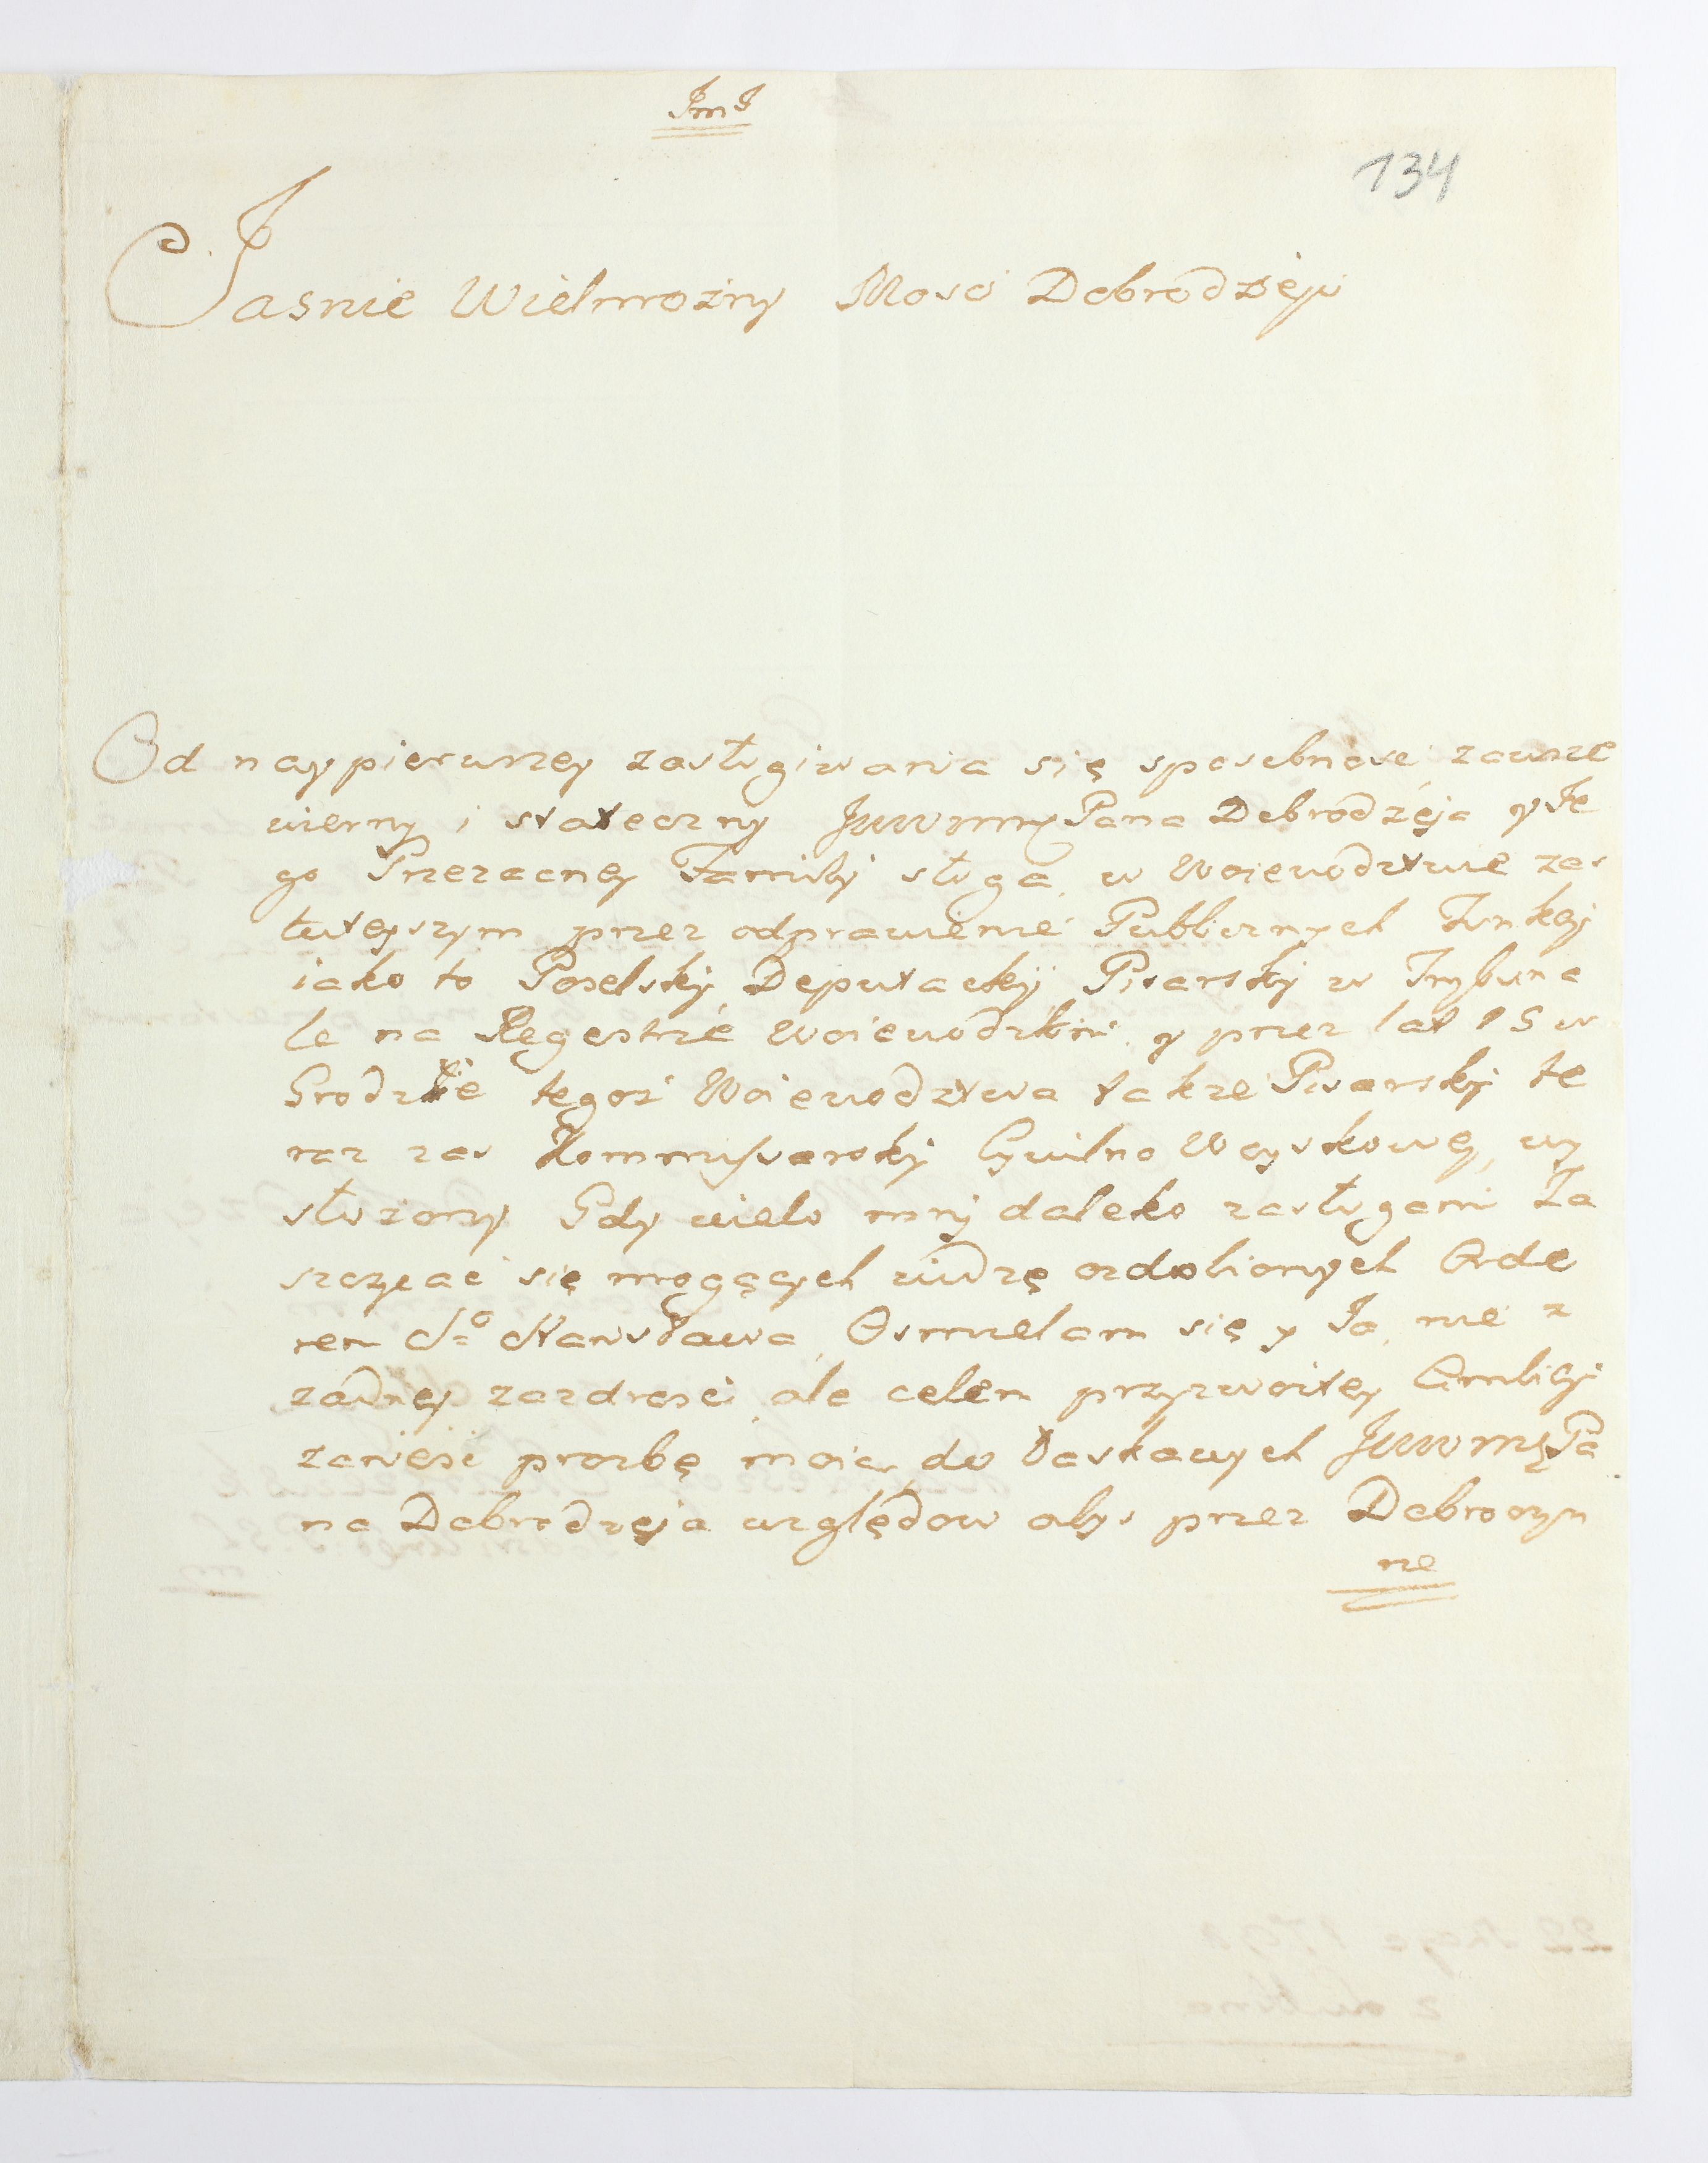 JmJ
134
Jasnie Wielmozny Mosci Dobrodzieju
Od naypierwszey zasługiwania się sposobnosci zawsze
wierny i stateczny JWWmy Pana Dobrodzieja y Je
go Przezacney Familij sługa, w Woiewodztwie za
tuteyszym przez odprawienie Publicznych Funkcij
iako to Poselskij, Deputackij Pisarskij w Trybuna
le na Regestrze Woiewodzkim, y przez lat 15 w
Grodzie tegoż Woiewodztwa także Pisarskij te
raz zas Kommissarskij Cywilno Woyskowey, wy
służony Gdy wielu mnij daleko zasługami Za
szczycac się mogących widzę ozdobionych Orde
rem So Stanisława, Osmielam się y Ja, nie z
żadney zazdrosci ale celem przyzwoitey Ambicij
zaniesc prozbę moią do Łaskawych JWWmę Pa
na Dobrodzieja względow abys przez Dobroczyn
ne